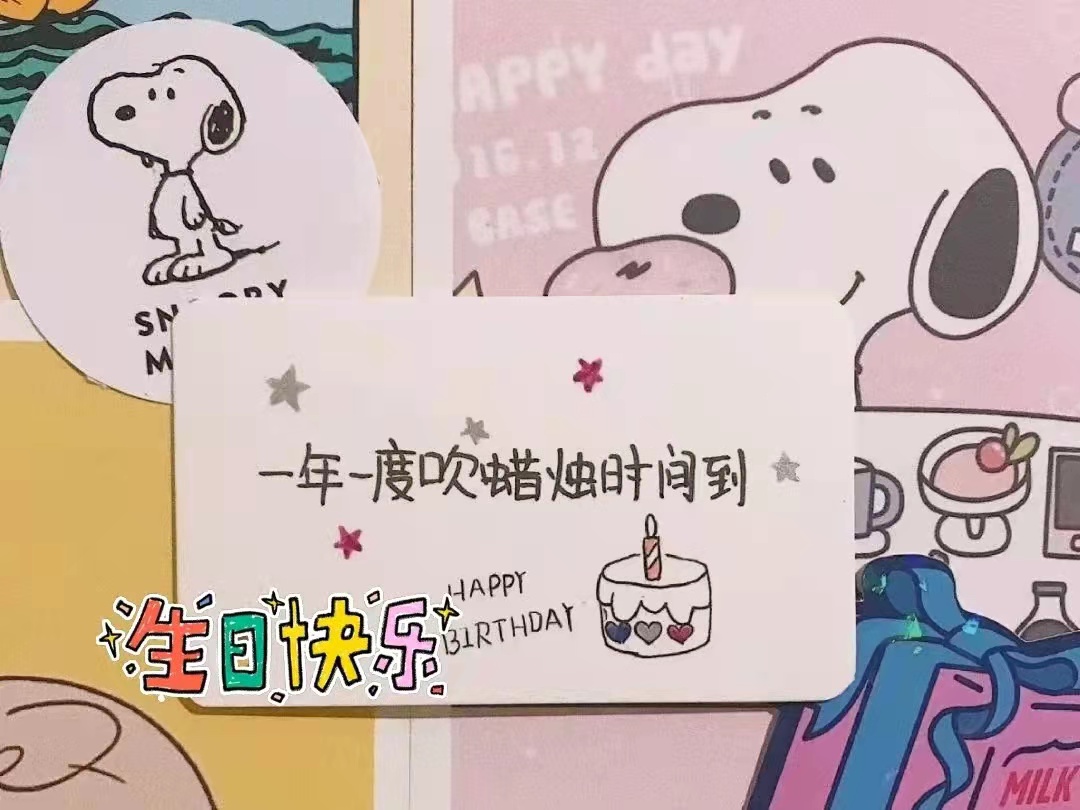 APPY day
16.12
BASE
一年一度吹蜡烛时间到
HAPPY
BIRTHDAY
生日快乐
MILK